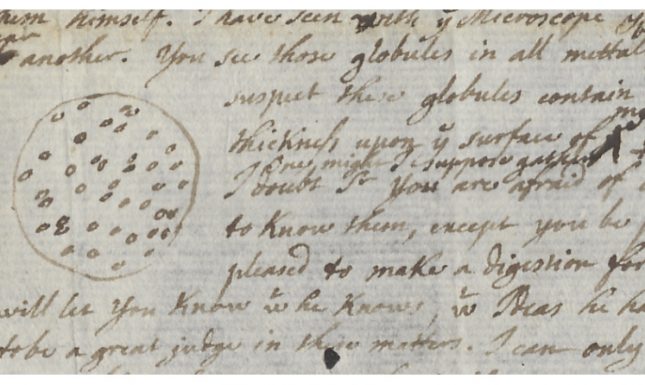 them himself. I have seen with ye Microscope
another. You see those globules in all mettal
suspect these globules contain
thickness upon ye surface of
One might suppose
I doubt Sr You are afraid of
to Know them, except you be
pleased to make a digestion for
will let you Know wt he Knows, wt Ideas he ha
to be a great judge in these matters. I can only